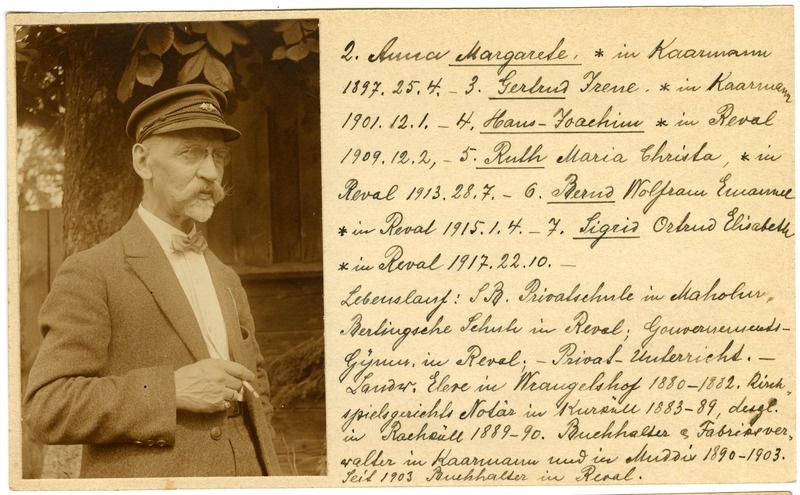 2. Anna Margarete. * in Kaarmann
1897. 25.4. – 3. Gertrud Irene. * in Kaarmann
1901. 12.1. – 4. Hans-Joachim * in Reval
1909. 12.2, – 5. Ruth Maria Christa, * in
Reval 1913. 28.7. – 6. Bernd Wolfram Emanuel
* in Reval 1915. 1.4. – 7. Sigrid Ortrud Elisabeth
* in Reval 1917. 22.10. –
Lebenslauf: Privatschule in
Berlingsche Schule in Reval; Gouvernements-
Gymn. in Reval; – Privat-Unterricht. –
Landw. Eleve in Wrangelshof 1880–1882. Kirch-
spielsgerichts Notär in Kurküll 1883–89, desgl.
in Rachküll 1889–90. Buchhalter & Fabriksver-
walter in Kaarmann und in Muddis 1890–1903.
Seit 1903 Buchhalter in Reval.